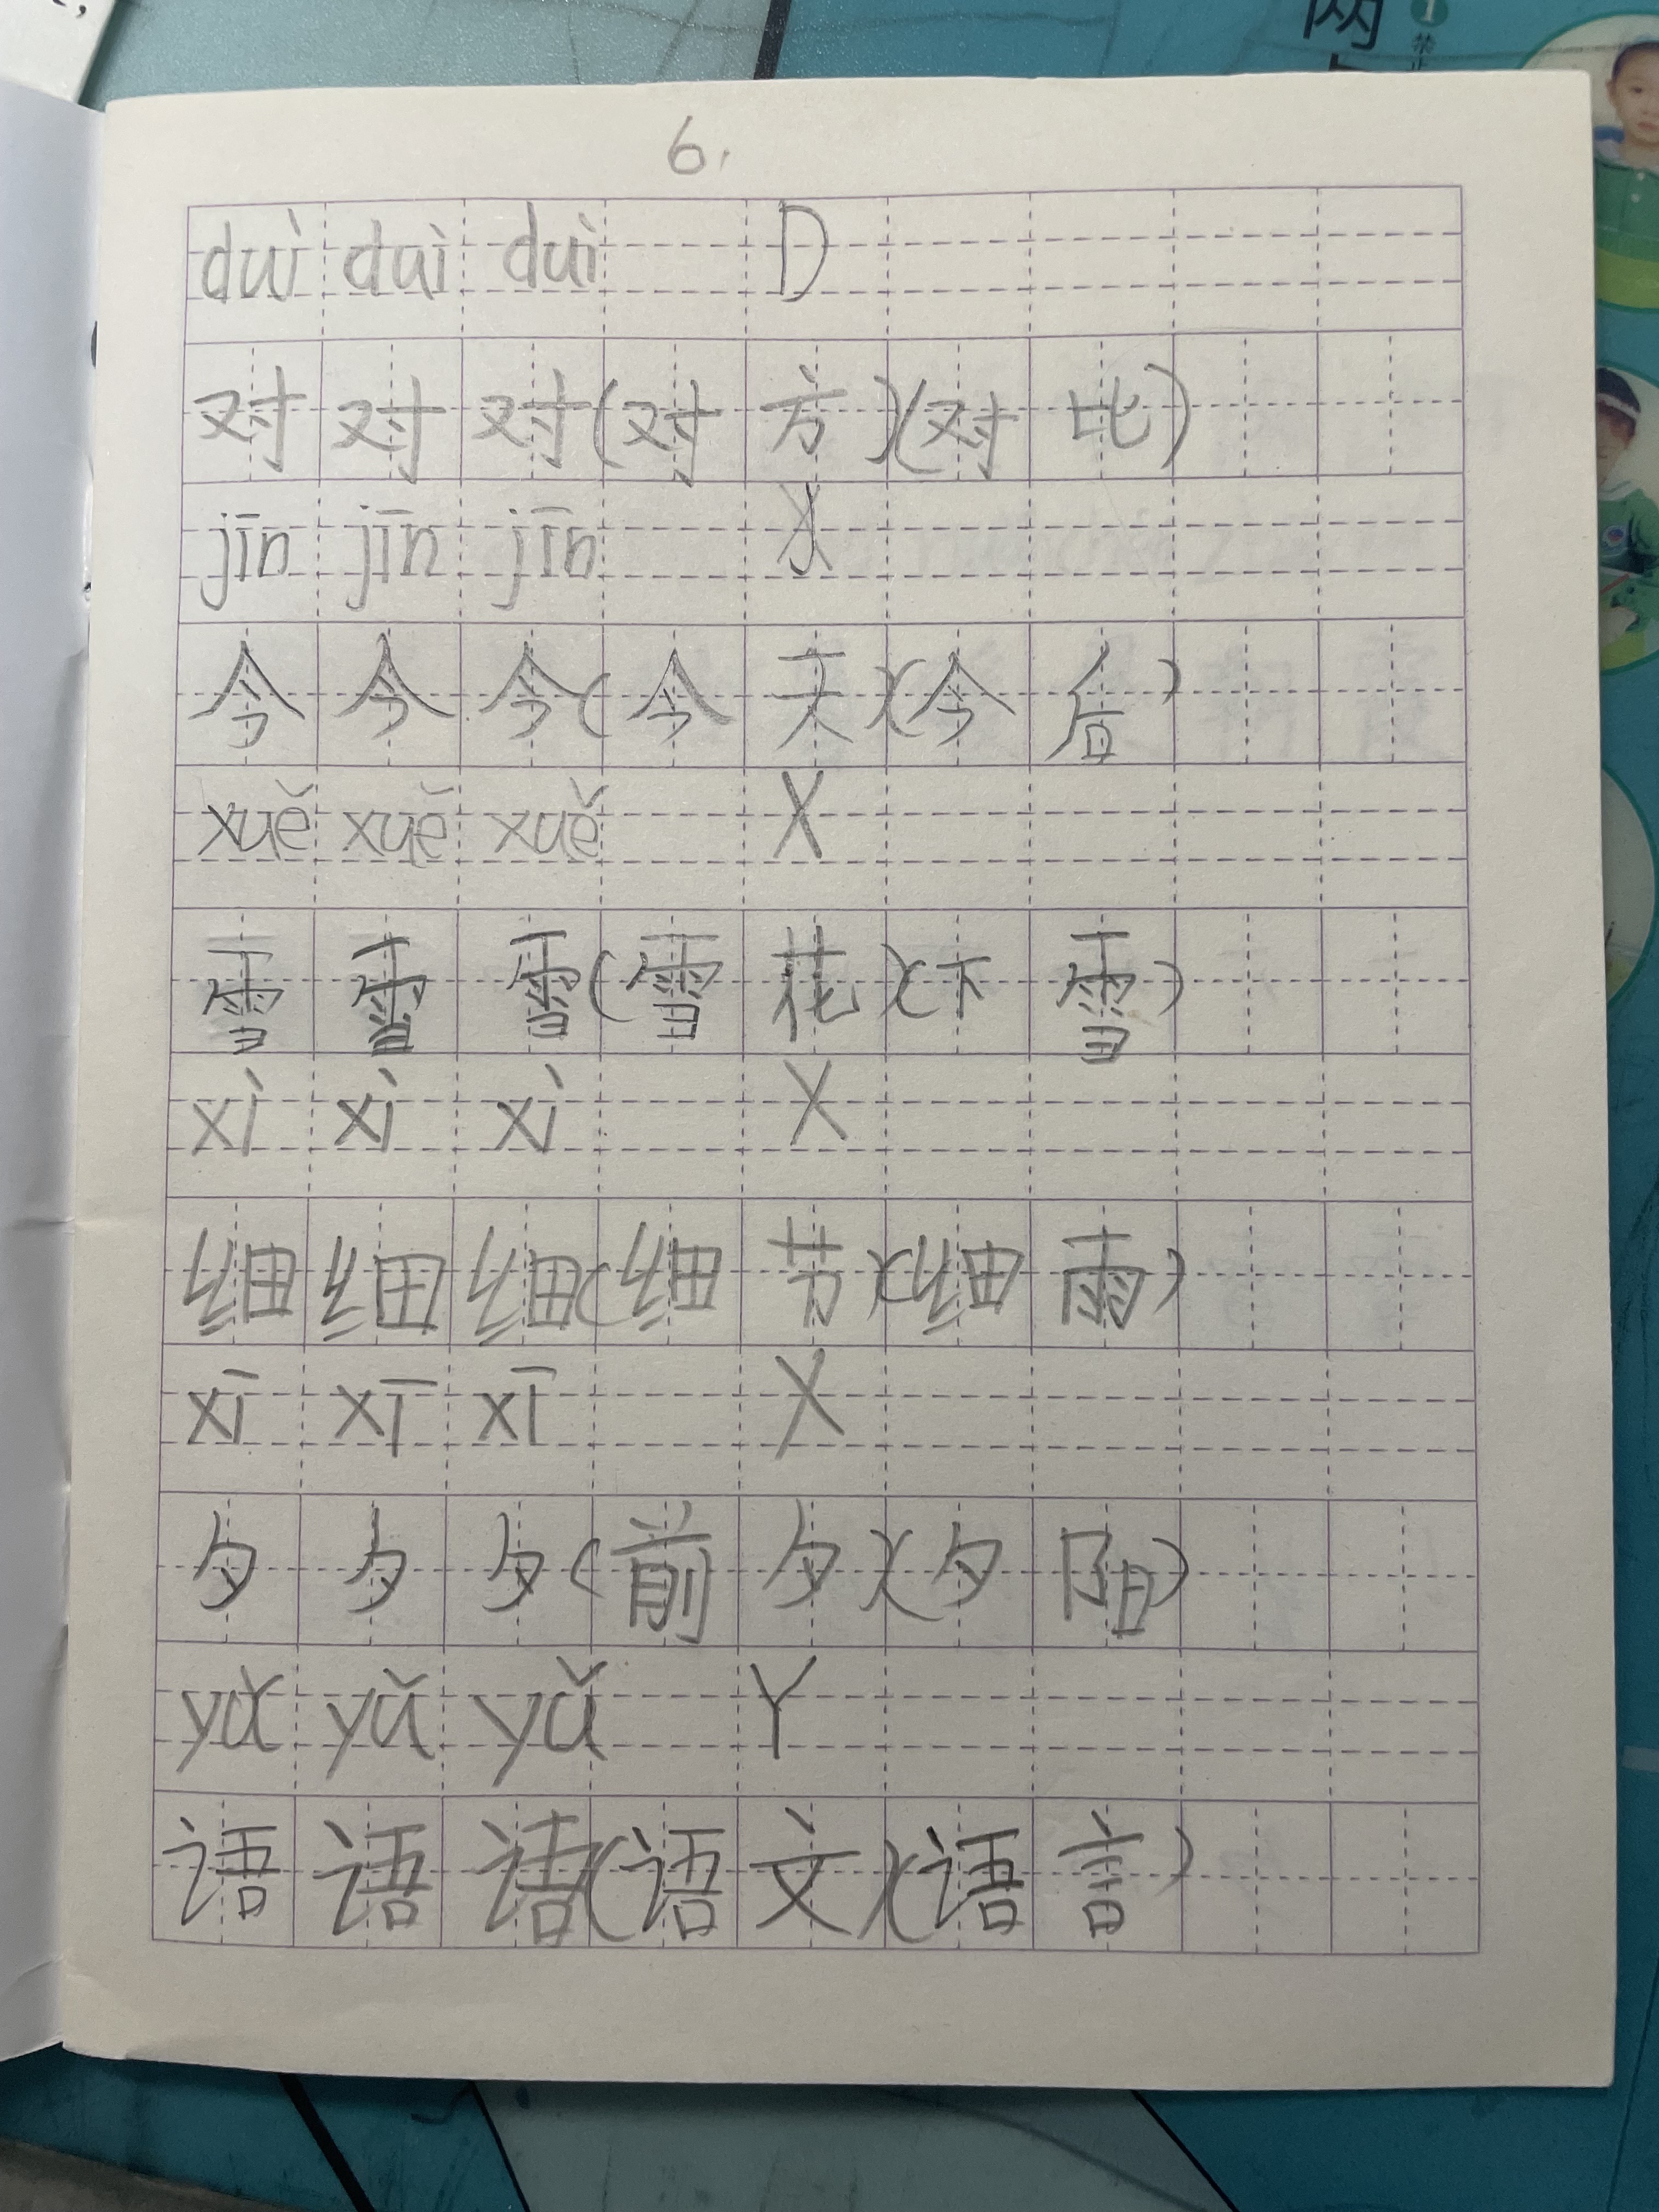 两
1
6.
duì duì duì D
对 对 对(对 方)(对 比)
jīn jīn jīn
今 今 今(今 天)(今 后)
xuě xuě xuě X
雪 雪 雪(雪 花)(下 雪)
xì xì xì X
细 细 细(细 节)(细 雨)
xī xī xī X
夕 夕 夕(前 夕)(夕 阳)
yǔ yǔ yǔ Y
语 语 语(语 文)(语 言)